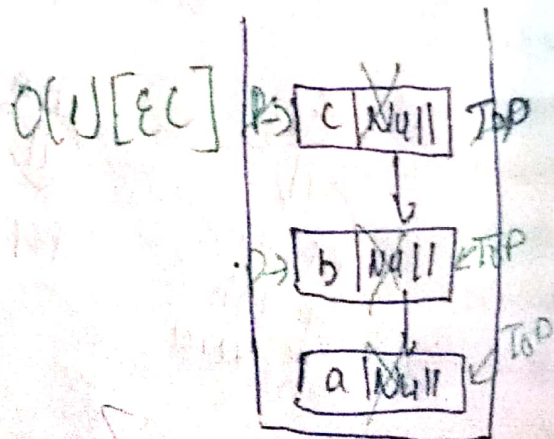 O(1)[EC] P→ c Null TOP
P→ b Null TOP
a Null TOP